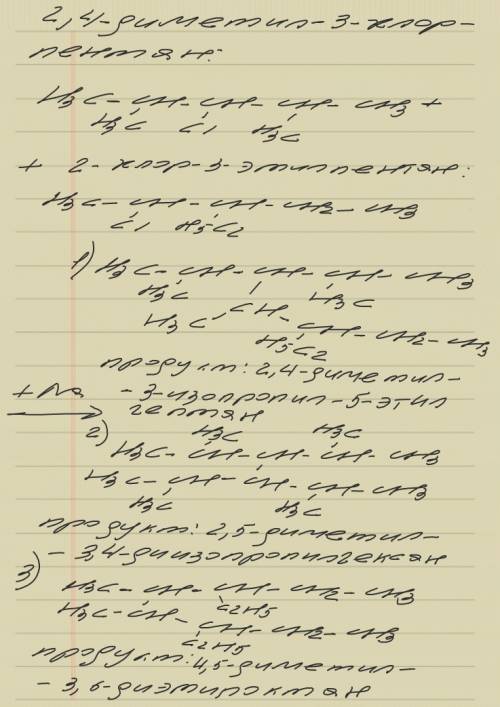 2,4-диметил-3-хлор-
пентан:
H3C-CH-CH-CH-CH3 +
H3C Cl H3C
+ 2-хлор-3-этилпентан:
H3C-CH-CH-CH2-CH3
Cl H5C2
1) H3C-CH-CH-CH-CH3
H3C H3C
H3C CH-
CH-CH2-CH3
H5C2
продукт: 2,4-диметил-
+ Na -3-изопропил-5-этил
гептан
2) H3C H3C
H3C-CH-CH-CH-CH3
H3C-CH-CH-CH-CH3
H3C H3C
продукт: 2,5-диметил-
-3,4-диизопропилгексан
3) H3C-CH-CH-CH2-CH3
C2H5
H3C-CH-
CH-CH2-CH3
C2H5
продукт: 4,5-диметил-
-3,6-диэтилоктан